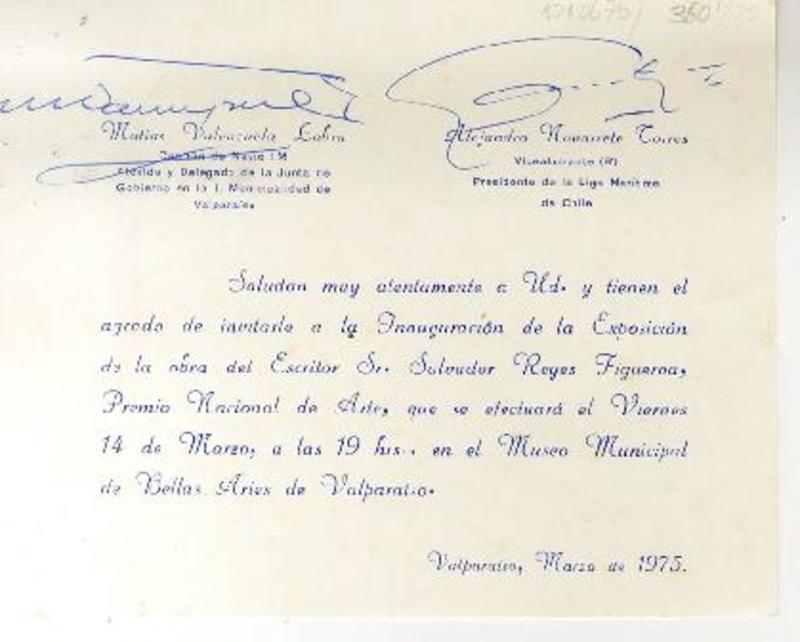 360
Matías Valenzuela Labra
Capitán de Navío IM
Alcalde y Delegado de la Junta de
Gobierno en la I. Municipalidad de
Valparaíso
Alejandro Navarrete Torres
Vicealmirante (R)
Presidente de la Liga Marítima
de Chile
Saludan muy atentamente a Ud. y tienen el
agrado de invitarle a la Inauguración de la Exposición
de la obra del Escritor Sr. Salvador Reyes Figueroa,
Premio Nacional de Arte, que se efectuará el Viernes
14 de Marzo, a las 19 hrs., en el Museo Municipal
de Bellas Artes de Valparaíso.
Valparaíso, Marzo de 1975.